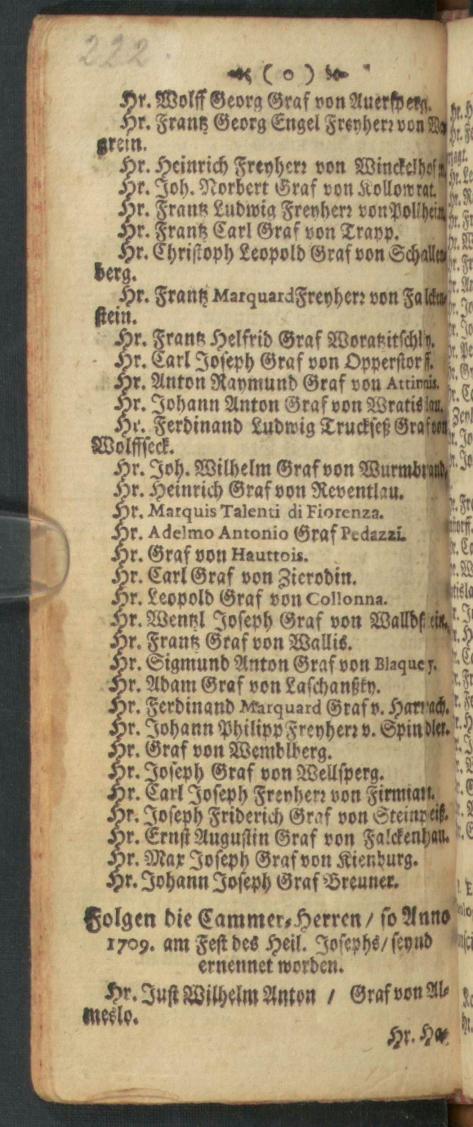 222.
( o )
Hr. Wolff Georg Graf von Auersperg.
Hr. Frantz Georg Engel Freyherr von Wa-
grein.
Hr. Heinrich Freyherr von Winckelhofen
Hr. Joh. Norbert Graf von Kollowrat.
Hr. Frantz Ludwig Freyherr von Pollheim
Hr. Frantz Carl Graf von Trapp.
Hr. Christoph Leopold Graf von Schallen-
berg.
Hr. Frantz Marquard Freyherr von Falcken-
stein.
Hr. Frantz Helfrid Graf Woratzitschky.
Hr. Carl Joseph Graf von Opperstorff.
Hr. Anton Raymund Graf von Attimis.
Hr. Johann Anton Graf von Wratislau.
Hr. Ferdinand Ludwig Truckseß Graf von
Wolffseck.
Hr. Joh. Wilhelm Graf von Wurmbrand.
Hr. Heinrich Graf von Reventlau.
Hr. Marquis Talenti di Fiorenza.
Hr. Adelmo Antonio Graf Pedazzi.
Hr. Graf von Hauttois.
Hr. Carl Graf von Zierodin.
Hr. Leopold Graf von Collonna.
Hr. Wentzl Joseph Graf von Walldstein.
Hr. Frantz Graf von Wallis.
Hr. Sigmund Anton Graf von Blaquey.
Hr. Adam Graf von Laschanßky.
Hr. Ferdinand Marquard Graf v. Harrach.
Hr. Johann Philipp Freyherr v. Spindler.
Hr. Graf von Wemblberg.
Hr. Joseph Graf von Wellsperg.
Hr. Carl Joseph Freyherr von Firmian.
Hr. Joseph Friderich Graf von Steinpeiß.
Hr. Ernst Augustin Graf von Falckenhan.
Hr. Max Joseph Graf von Kienburg.
Hr. Johann Joseph Graf Breuner.
Folgen die Cammer-Herren / so Anno
1709. am Fest des Heil. Josephs / seynd
ernennet worden.
Hr. Just Wilhelm Anton / Graf von Al-
meslo.
Hr. Ha-